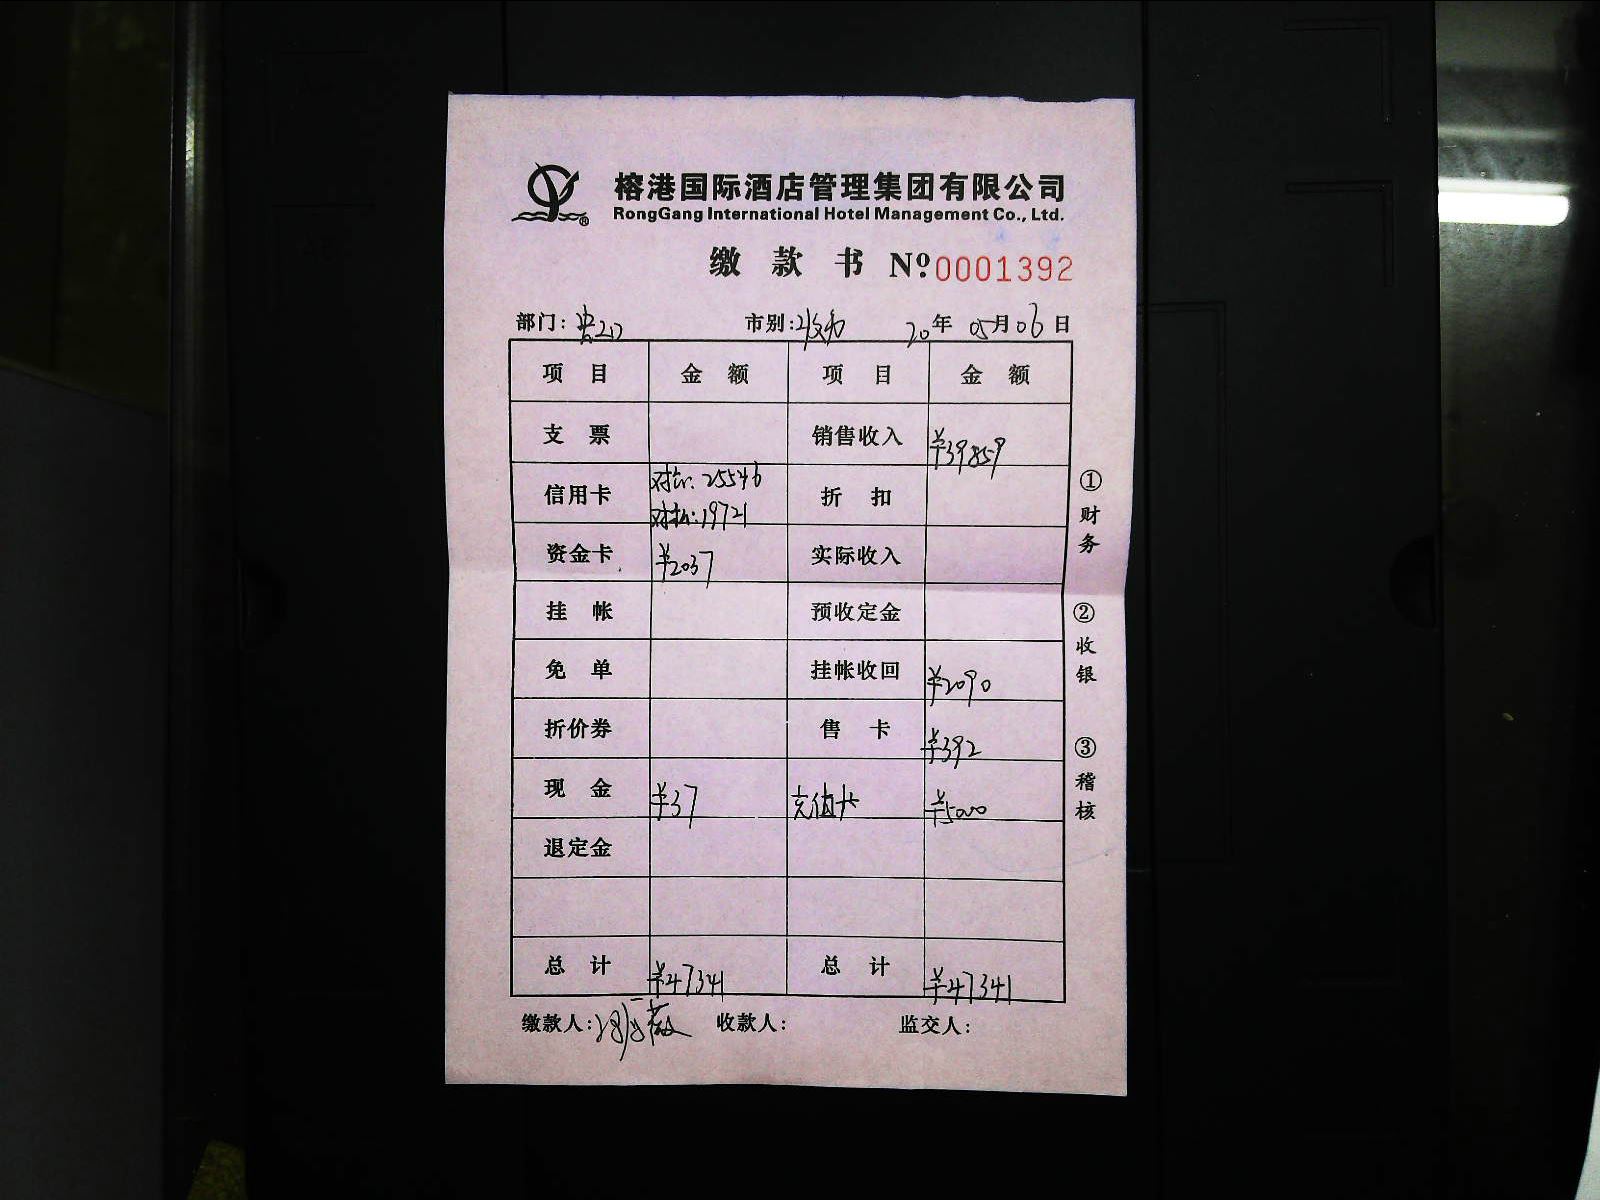 榕港国际酒店管理集团有限公司
RongGang International Hotel Management Co., Ltd.
缴款书 Nº 0001392
部门: 市别: 20年05月06日
项目 金额 项目 金额
支票 销售收入 ¥39859
信用卡 25546 折扣
19721
资金卡 ¥2037 实际收入
挂帐 预收定金
免单 挂帐收回 ¥2090
折价券 售卡 ¥392
现金 ¥37 充值卡 ¥5000
退定金
总计 ¥47341 总计 ¥47341
缴款人: 收款人: 监交人:
①财务
②收银
③稽核